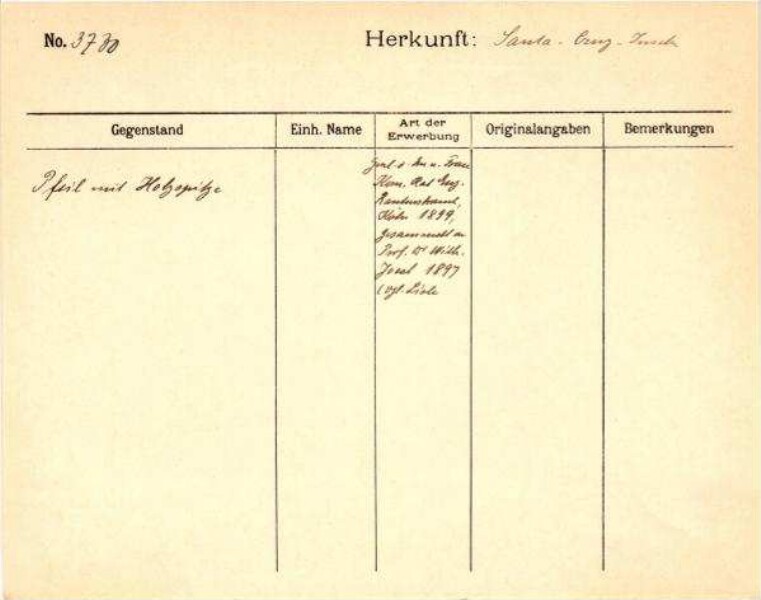 No. 3730 Herkunft: Santa-Cruz-Inseln
Gegenstand Einh. Name Art der Erwerbung Originalangaben Bemerkungen
Pfeil mit Holzspitze
u. Frau
Kom. Rat Eug.
Rautenstrauch,
Köln 1899,
gesammelt v.
Prof. Dr Wilh.
Joest 1897
(vgl. Liste